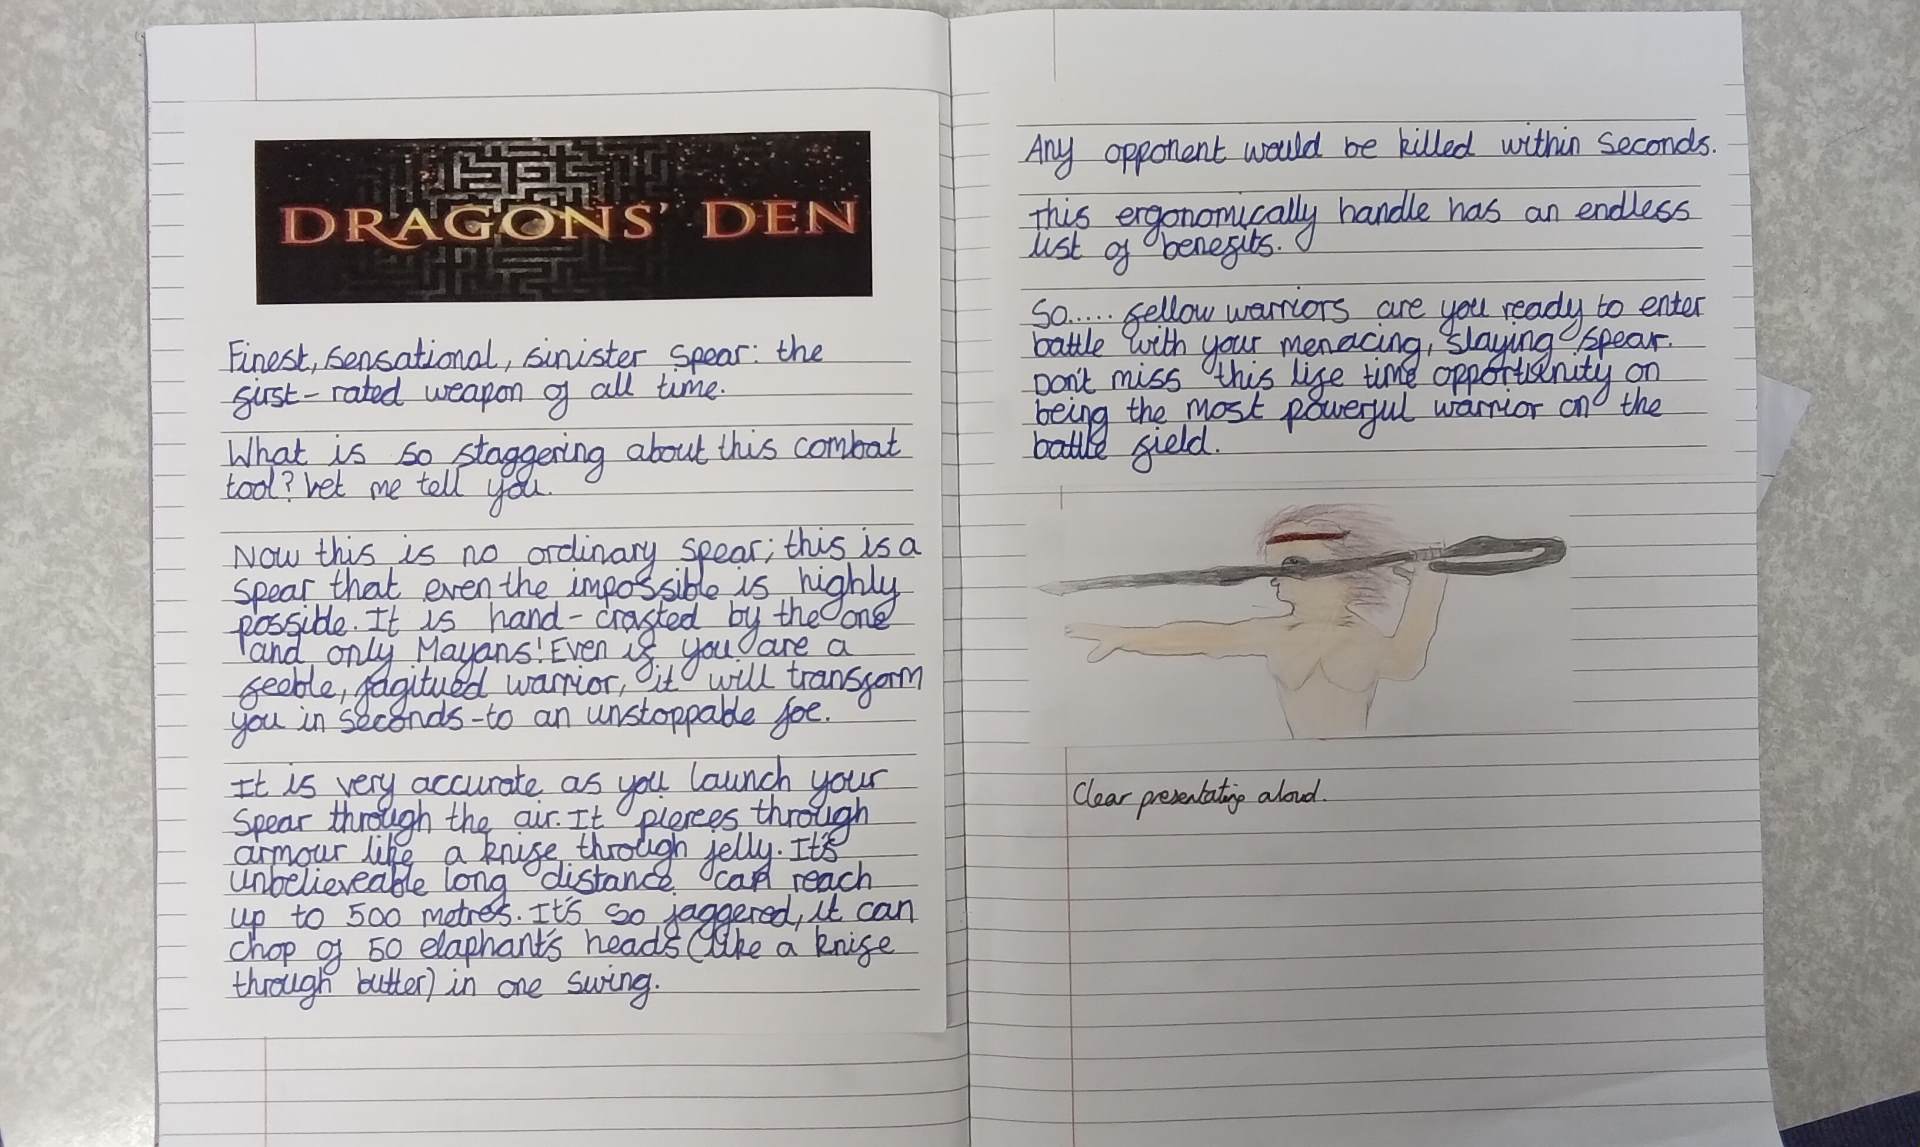 DRAGONS' DEN
Finest, sensational, sinister spear: the
first-rated weapon of all time.
What is so staggering about this combat
tool? Let me tell you.
Now this is no ordinary spear; this is a
spear that even the impossible is highly
possible. It is hand-crafted by the one
and only Mayans! Even if you are a
feeble, fagitued warrior, it will transform
you in seconds-to an unstoppable foe.
It is very accurate as you launch your
spear through the air. It pierces through
armour like a knife through jelly. It's
unbelieveable long distance can reach
up to 500 metres. It's so jaggered, it can
chop of 50 elaphant's heads (like a knife
through butter) in one swing.
Any opponent would be killed within seconds.
This ergonomically handle has an endless
list of benefits.
So..... fellow warriors are you ready to enter
battle with your menacing, slaying spear.
Don't miss this life time opportunity on
being the most powerful warrior on the
battle field.
Clear presentating aloud.